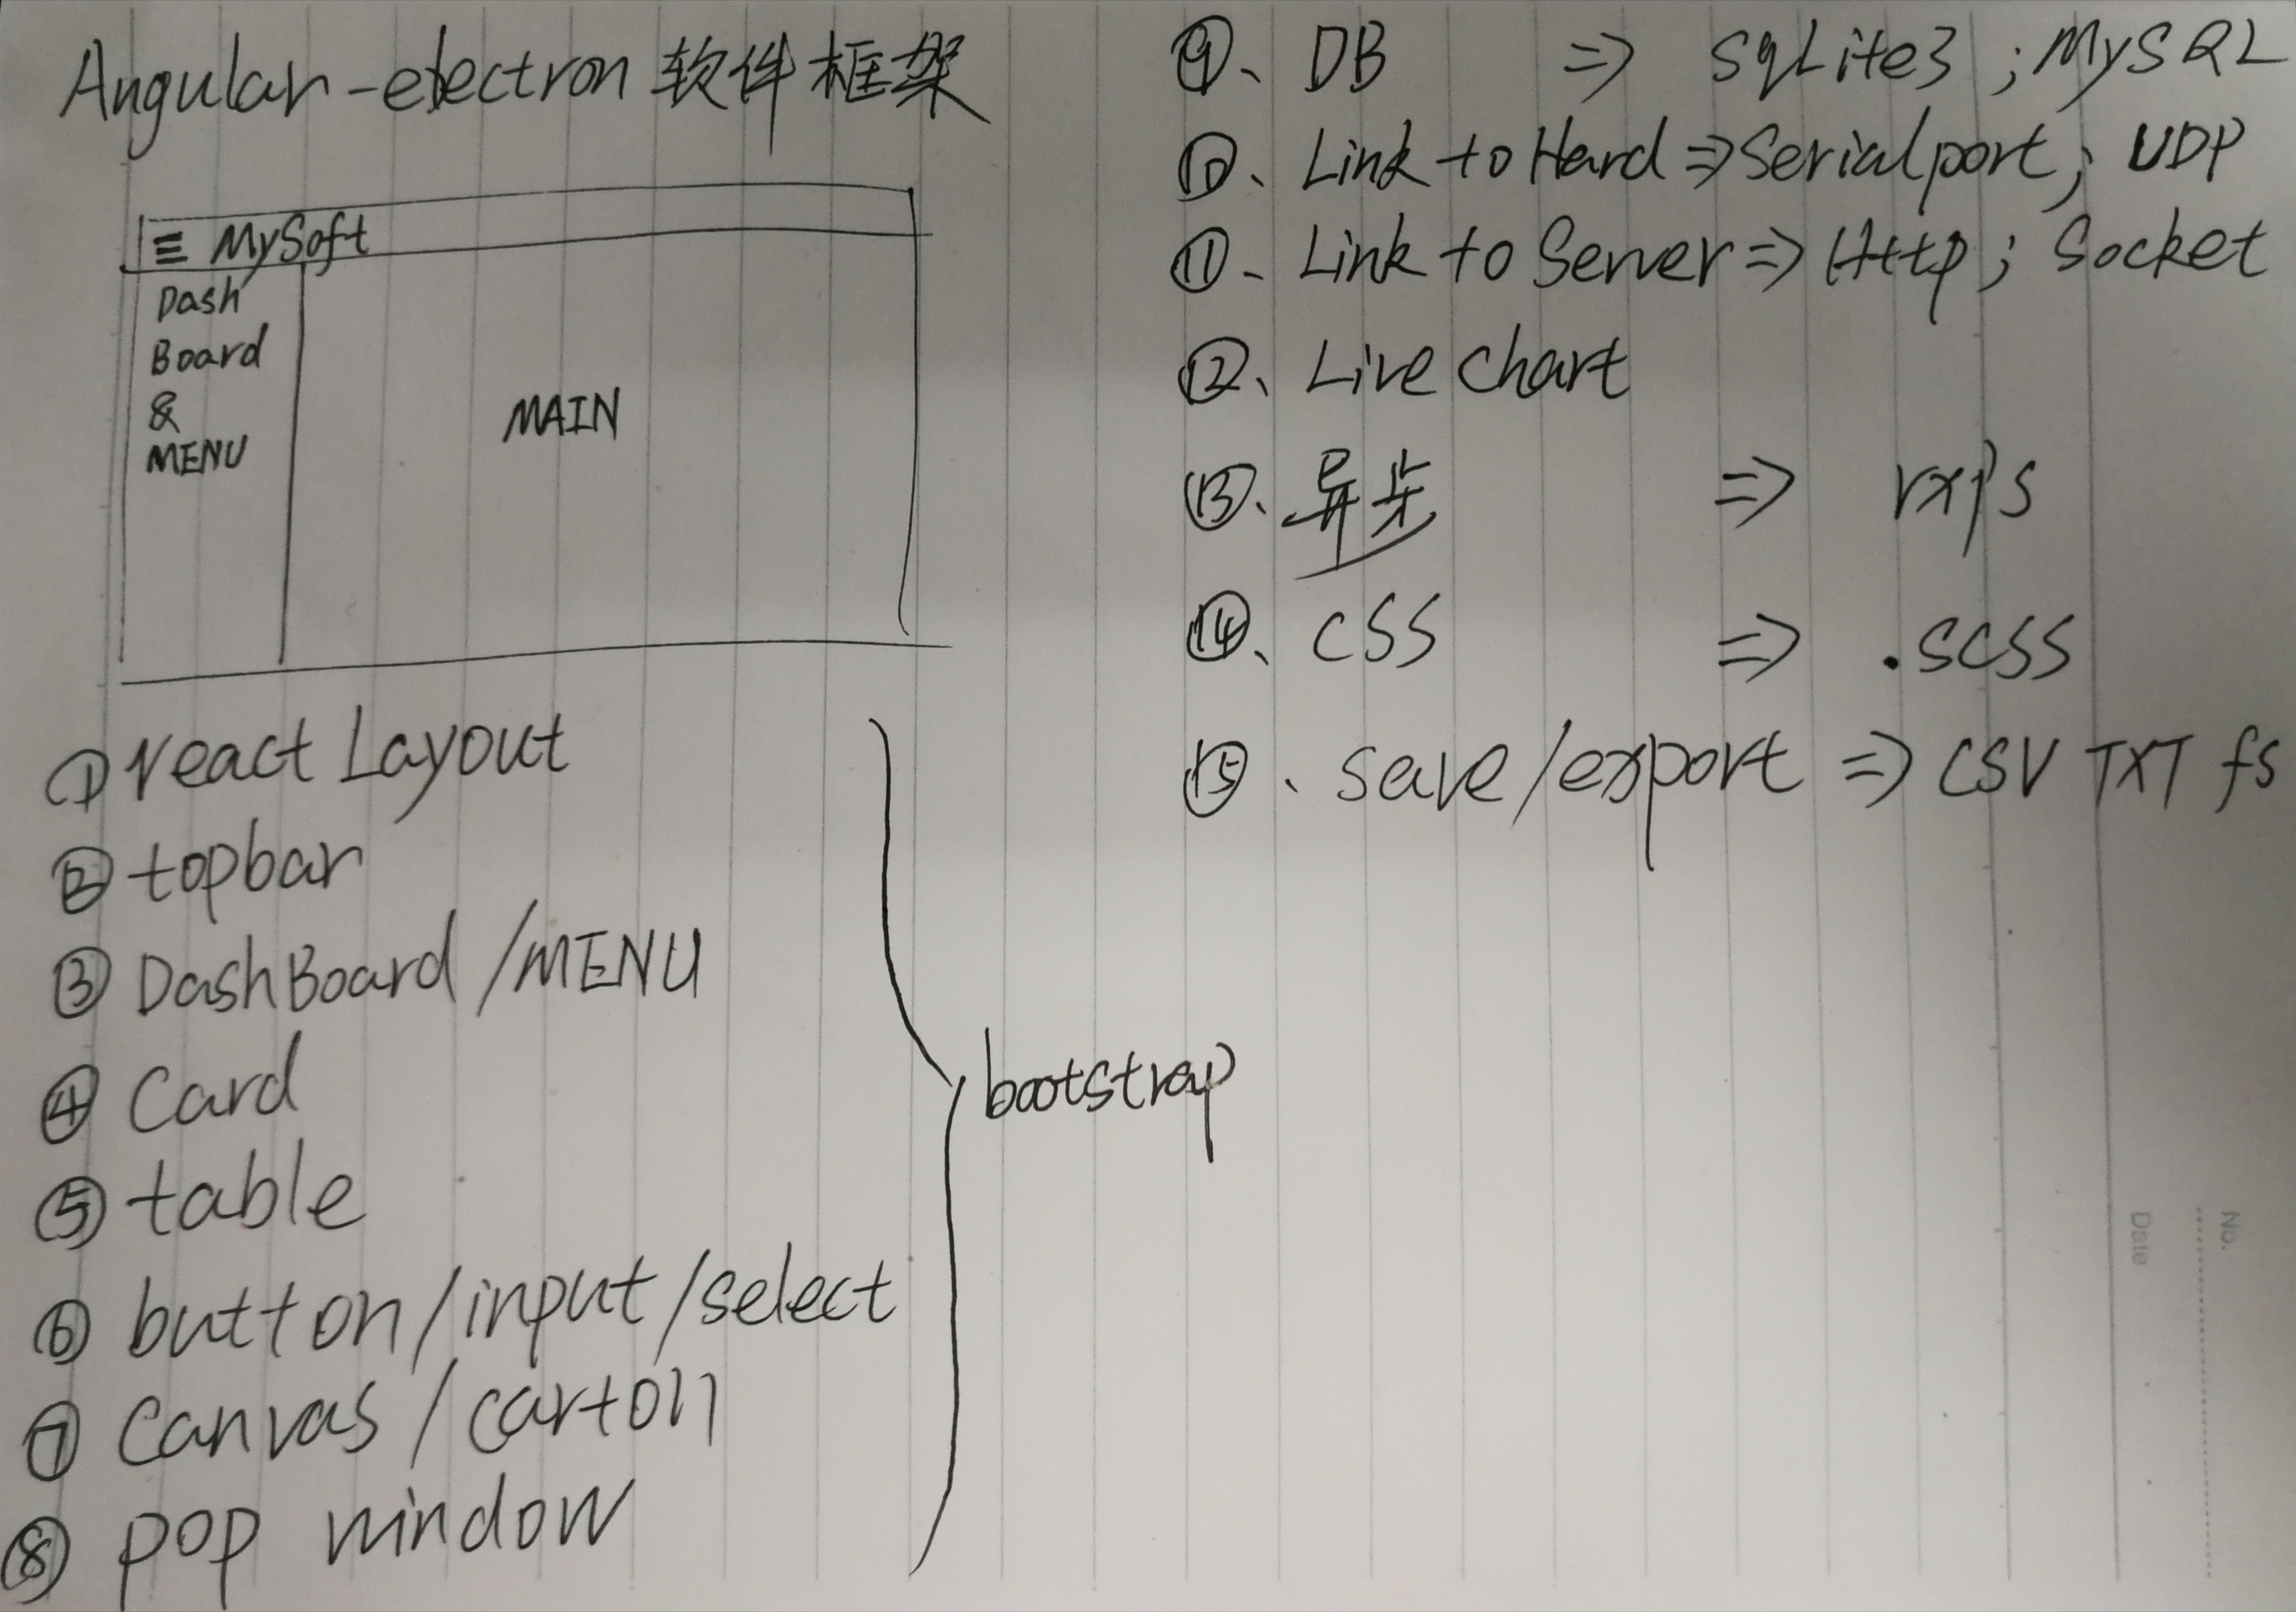 Angular-electron 软件框架
≡ MySoft
Dash
Board
&
MENU
MAIN
① react Layout
② topbar
③ DashBoard/MENU
④ Card
⑤ table
⑥ button/input/select
⑦ Canvas/cartoon
⑧ pop window
bootstrap
⑨、DB => sqLite3 ; MySQL
⑩、Link to Hard => Serialport; UDP
⑪、Link to Server => Http; Socket
⑫、Live chart
⑬、异步 => rxjs
⑭、CSS => .scss
⑮、save/export => CSV TXT fs
No.
Date